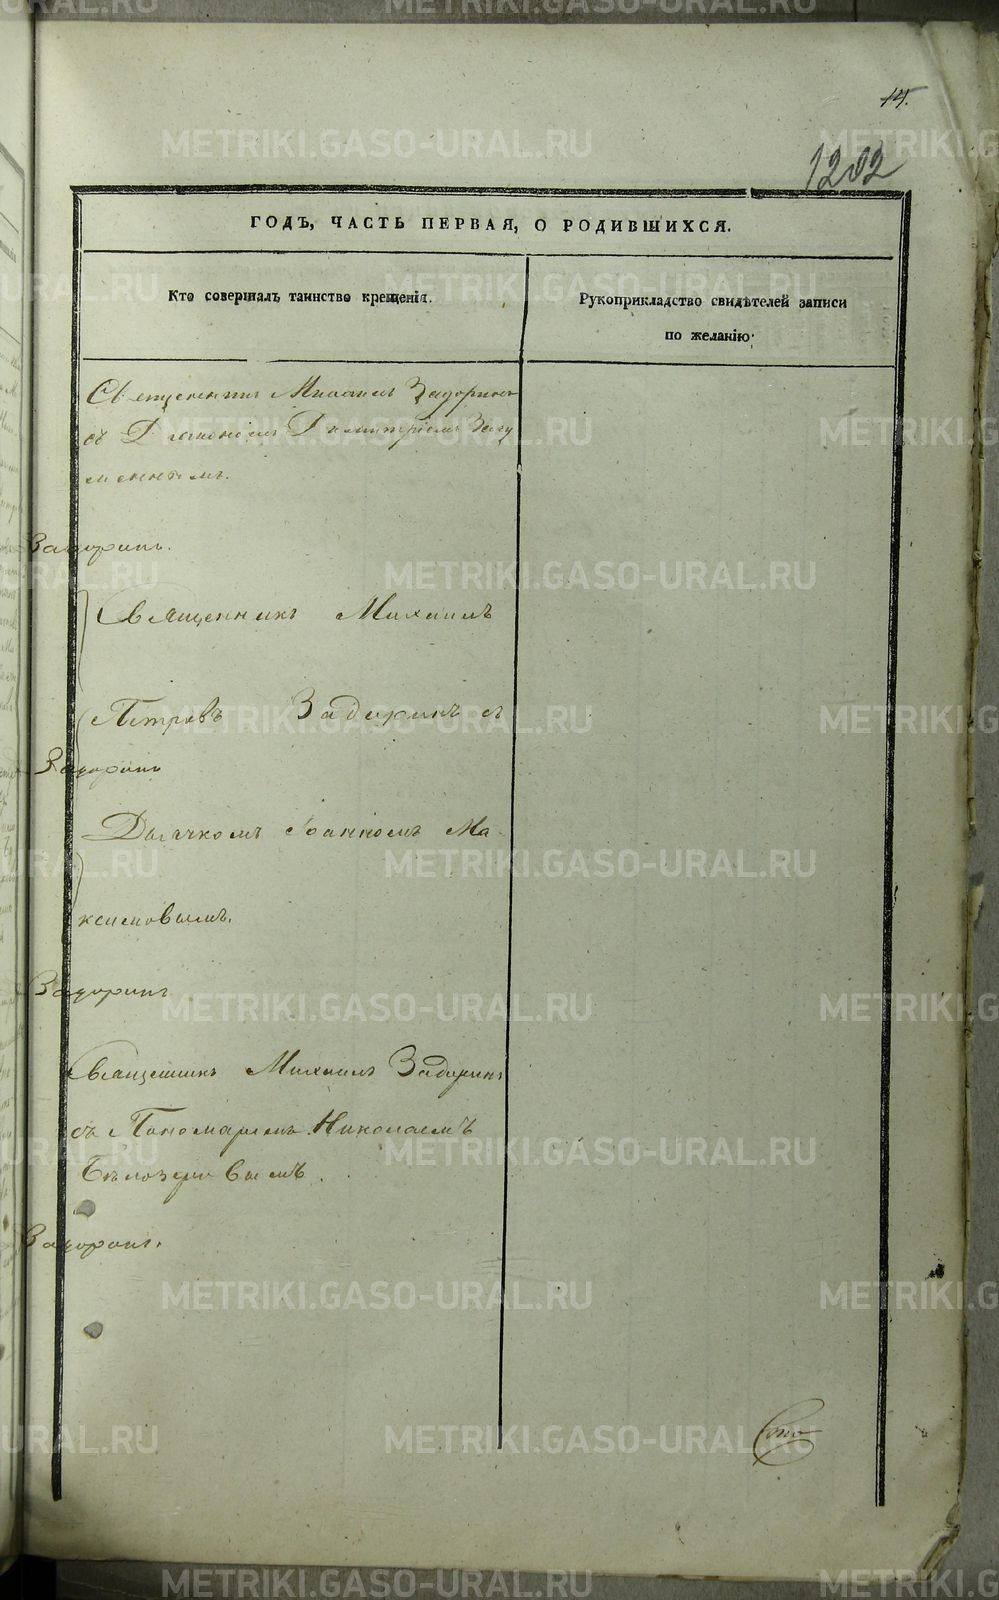 METRIKI.GASO-URAL.RU
14.
1202
ГОДЪ, ЧАСТЬ ПЕРВАЯ, О РОДИВШИХСЯ.
Кто совершалъ таинство крещенія.
Рукоприкладство свидѣтелей записи
по желанію:
Священникъ Михаилъ Задоринъ
съ Діакономъ Димитріемъ Загу
меннымъ.
Задоринъ.
Священникъ Михаилъ
Петровъ Задоринъ съ
Задоринъ
Дьячкомъ Іоанномъ Ма
ксимовымъ.
Задоринъ
Священникъ Михаилъ Задоринъ
съ Пономаремъ Николаемъ
Бѣлозеровымъ.
Задоринъ.